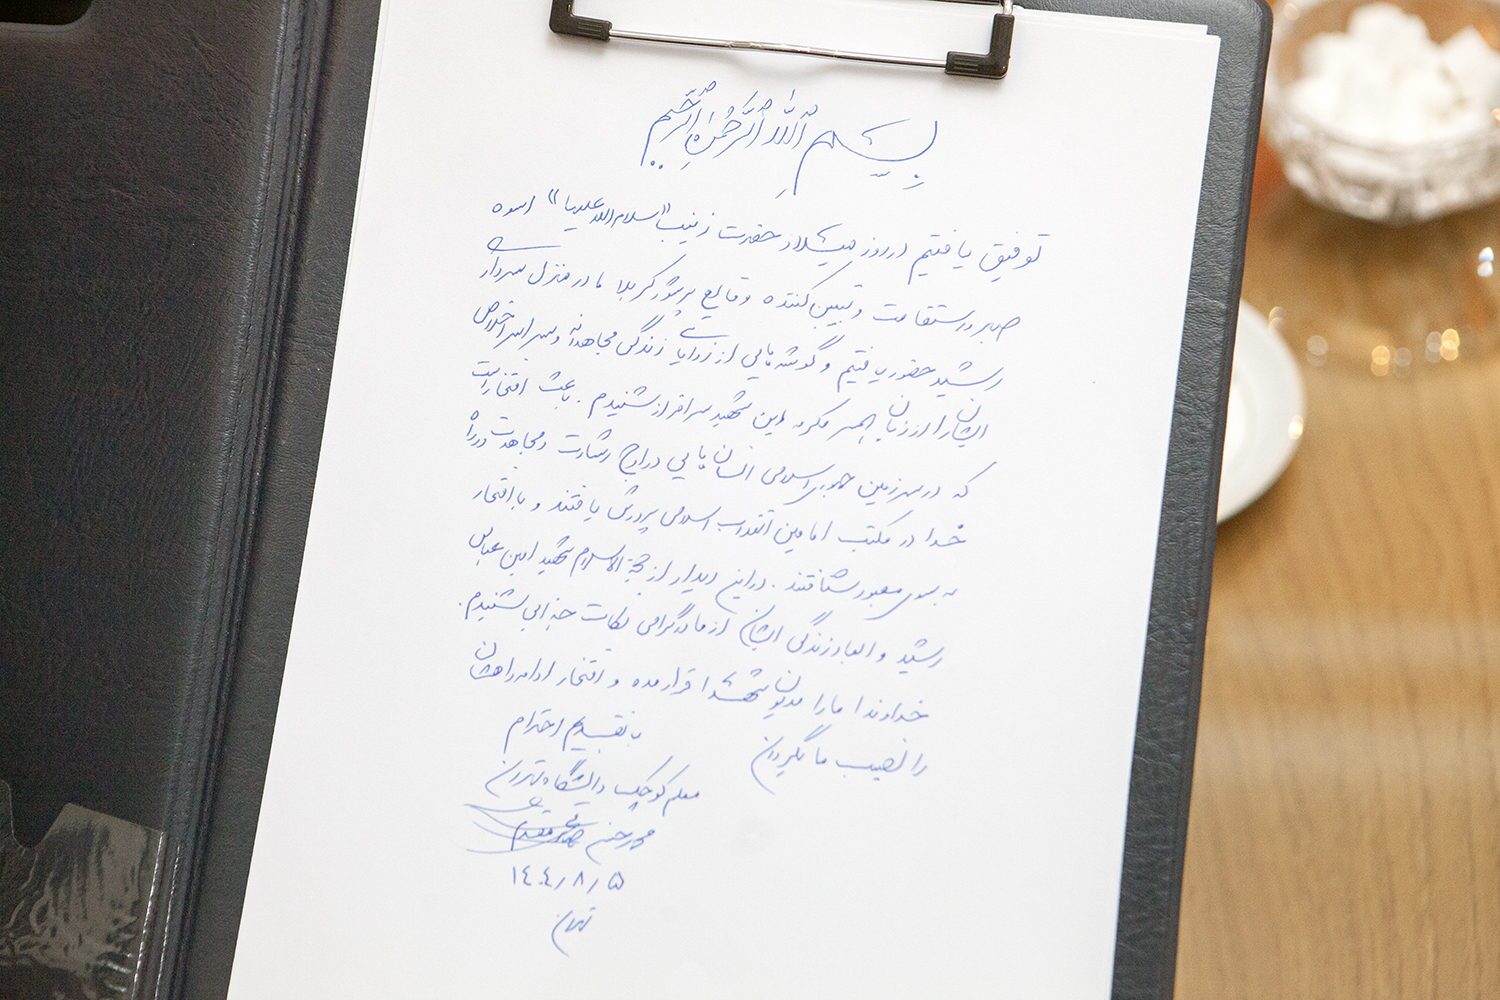 بسم الله الرحمن الرحیم
توفیق یافتیم در روز میلاد حضرت زینب "سلام الله علیها" اسوه
صبر و استقامت و تبیین کننده وقایع پرشور کربلا ما در منزل سردار
رشید حضور یافتیم و گوشه هایی از زوایای زندگی مجاهدانه و سراسر اخلاص
ایشان را از زبان همسر مکرمه این شهید سرافراز شنیدم. باعث افتخار است
که در سرزمین جمهوری اسلامی انسان هایی در اوج رشادت و مجاهدت در راه
خدا در مکتب امامین انقلاب اسلامی پرورش یافتند و با افتخار
به سوی معبود شتافتند. در این دیدار از حجة الاسلام شهید امین عباس
رشید و ابعاد زندگی ایشان از مادر گرامی نکات جذابی شنیدم.
خداوندا ما را مدیون شهدا قرار مده و افتخار ادامه راهشان
را نصیب ما بگردان
با تقدیم احترام
معلم کوچک دانشگاه تهران
محمد حسن صادقی مقدم
۱۴۰۴/۸/۵
تهران